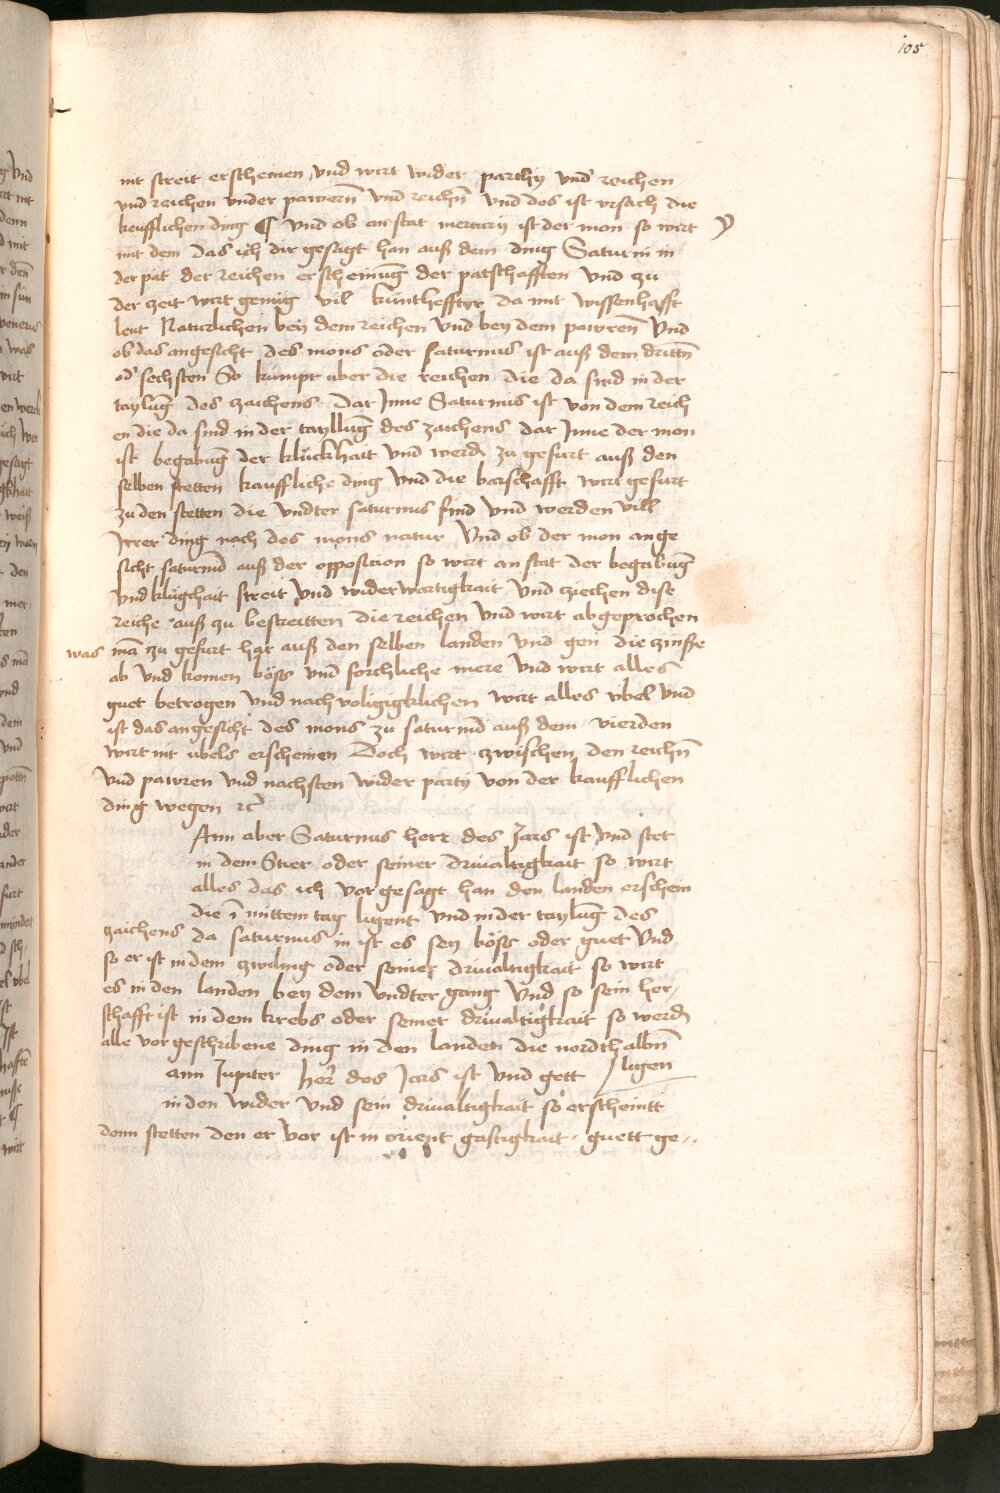 105
nit streit erscheinen vnd wirt wider parthÿ vnd reichen
vnd reichen vnder pawern̄ vnd reichn̄ vnd das ist vrsach die
keufflichen ding ¶ vnd ob an stat mercurij ist der mon so wirt
mit dem das ich dir gesagt han auß dem ding Saturni in
der pät der reichen erscheinūg der patschafften vnd zu
der zeit wirt genüg vil küntheffter da mit wissenhafft
leut Naturlichen beÿ dem reichen vnd beÿ dem pawren̄ Vnd
ob das angesicht des mons oder saturnus ist auß dem dritten̄
od' sechsten So kumpt vber die reichen die da sind in der
taylūg des zaichens dar Jnne Saturnus ist von dem reich
en die da sind in der tayllūg des zaichens dar Jnne der mon
ist begabūg der klückhait vnd werdn̄ zu gefurt auß den
selben stetten kauffliche ding vnd die barschafft wirt gefurt
zu den stetten die vndter saturnus sind vnd werden vill
Jrrer ding nach des mons natur Vnd ob der mon ange
sicht saturnū auß der opposition so wirt an stat der begabūg
vnd klugchait streit vnd widerwertigkait vnd ziechen dise
reiche auß zu bestreitten die reichen vnd wirt abgeprochen
was mā zu gefurt hat auß den selben landen vnd gen die zinße
ab vnd komen böss vnd forchliche mere vnd wirt alles
guet betrogen vnd nach voligigklichen wirt alles vbel vnd
ist das angesicht des mons zu saturnū auß dem vierden
wirt nit ubels erscheinen Doch wirt zwischen den reichn̄
vnd pawren vnd nachsten wider partÿ von der kaufflichen
ding wegen rc̄
Ann aber Saturnus here des Jars ist vnd stet
in dem Stier oder seiner driualtigkait so wirt
alles das ich vor gesagt han den landen erschein
die ī mittem tag ligent vnd in der taylūg des
zaichens da saturnus in ist es seÿ böss oder guet Vnd
so er ist in dem zwiling oder seiner driualtigkait so wirt
es in den landen beÿ dem vndter gang Vnd so sein her
schafft ist in dem krebs oder seiner driualtigkait so werdn̄
alle vor geschribene ding in den landen die nordthalbn̄
ann Jupiter her̄ des Jars ist vnd gett / ligen
in den wider vnd sein driualtigkait so erscheintt
denn stetten den er vor ist in orient gastigkait guett ge